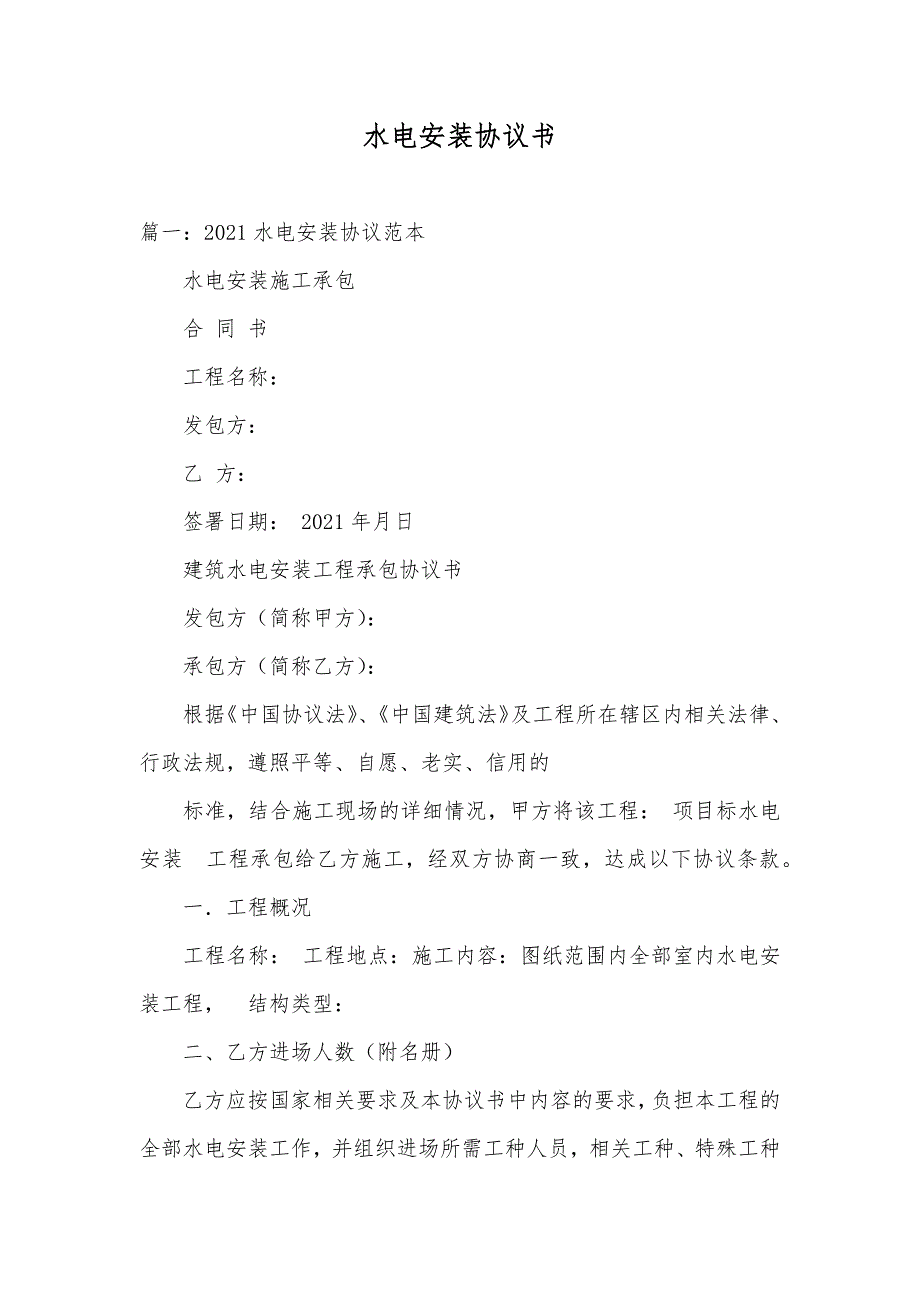 水电安装协议书
篇一：2021水电安装协议范本
水电安装施工承包
合 同 书
工程名称：
发包方：
乙 方：
签署日期： 2021年月日
建筑水电安装工程承包协议书
发包方（简称甲方）：
承包方（简称乙方）：
根据《中国协议法》、《中国建筑法》及工程所在辖区内相关法律、
行政法规，遵照平等、自愿、老实、信用的
标准，结合施工现场的详细情况，甲方将该工程： 项目标水电
安装 工程承包给乙方施工，经双方协商一致，达成以下协议条款。
一．工程概况
工程名称： 工程地点：施工内容：图纸范围内全部室内水电安
装工程， 结构类型：
二、乙方进场人数（附名册）
乙方应按国家相关要求及本协议书中内容的要求，负担本工程的
全部水电安装工作，并组织进场所需工种人员，相关工种、特殊工种